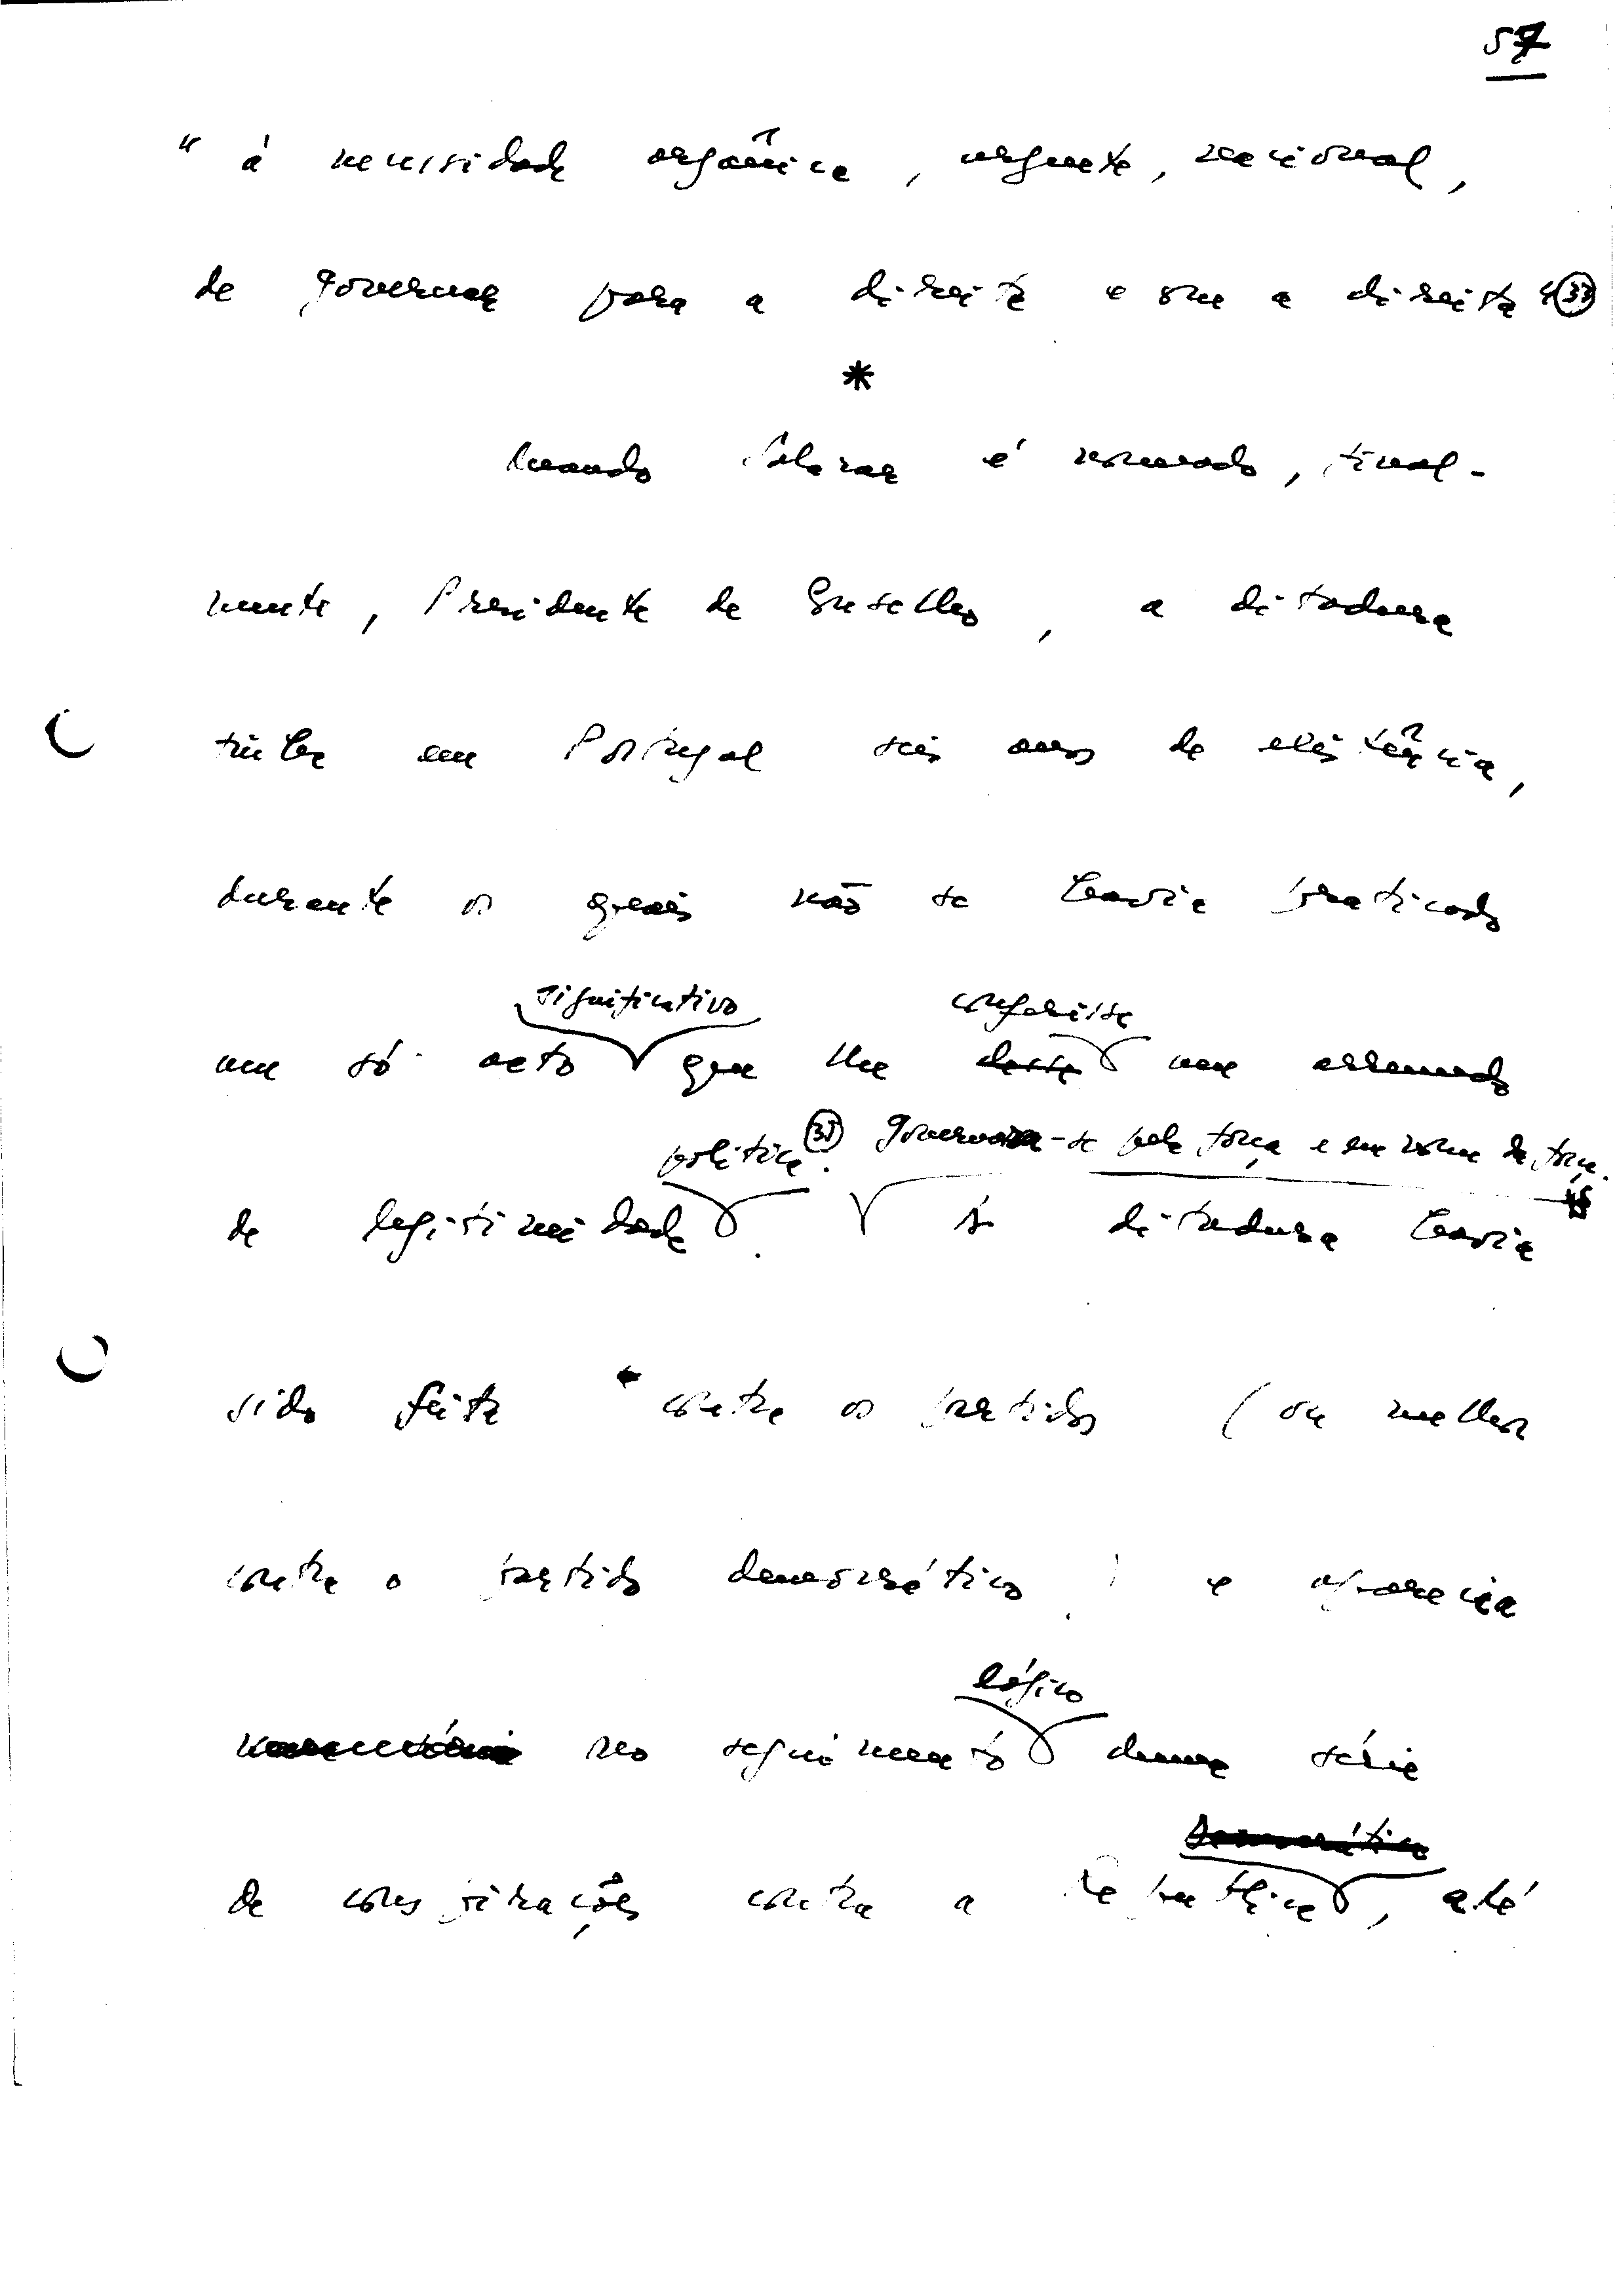 57
" à necessidade orgânica, urgente, nacional,
de governar para a direita e com a direita" (33)
*
Quando Salazar é nomeado, final-
mente, Presidente de Conselho, a ditadura
tinha em Portugal seis anos de existência,
durante os quais não se havia praticado
significativo conferisse
um só acto que lhe desse um arremedo
política (33). Governava-se pela força e em nome da força.
de legitimidade. A ditadura havia
sido feita contra os partidos (ou melhor
contra o partido democrático) e aparecia
lógico
no seguimento duma série
democrática
de conspirações contra a República, até